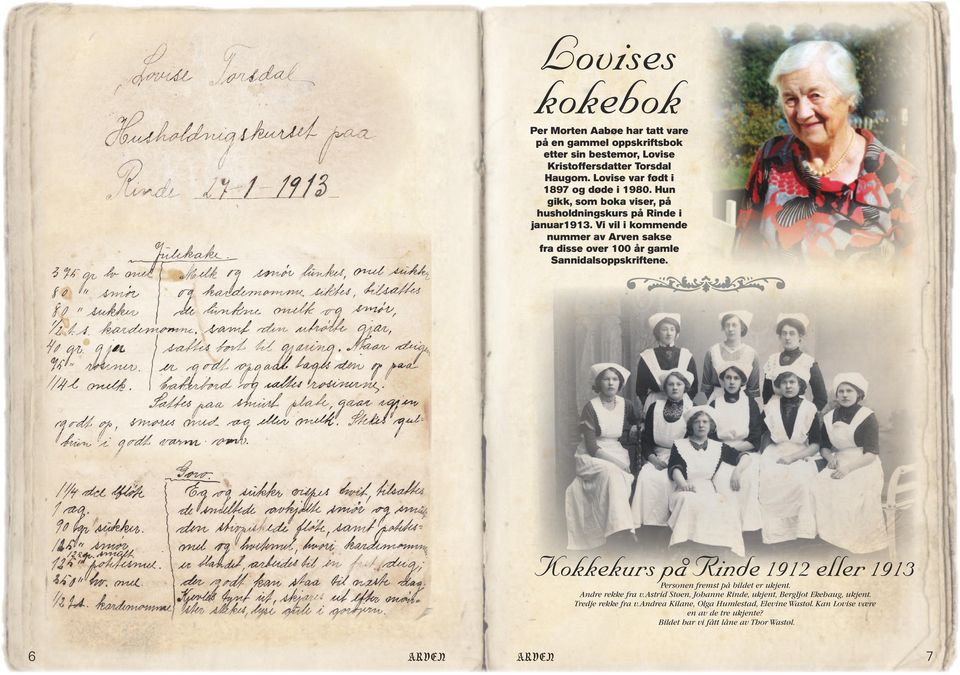 Lovise Torsdal
Husholdnigskurset paa
Rinde 27-1-1913
Julekake.
375 gr hv mel
80 " smör
80 " sukker
1/2 t.s. kardemomme.
40 gr. gjær
75 " rosiner.
1/4 l melk.
Melk og smör lunkes, mel sukker
og kardemomme siktes, tilsattes
de lunkne melk og smör,
samt den utrörte gjær,
sættes bort til gjæring. Naar deigen
er godt opgaat tages den op paa
bakerbord og sættes rosinerne.
Sættes paa smurt plate, gaar igjen
godt op, smöres med æg eller melk. Stekes gul-
brun i godt varm ovn.
Goro.
1 1/4 dcl flöte
1 æg.
90 gr sukker.
125 " smör
125 " potetesmel.
250 " hv. mel
1/2 t.s. kardemomme
Eg og sukker vispes hvit, tilsættes
de smeltede avkjölte smör og
den stivpiskede flöte, samt potetes-
mel og hvetemel, hvori kardemomme
er blandet, arbeides til en deig;
der godt kan staa til næste dag.
Kjevles tynt ut, skjæres ut efter mön-
ster stekes, lyse gule i gorojern.
6
ARVEN
Lovises
kokebok
Per Morten Aabøe har tatt vare
på en gammel oppskriftsbok
etter sin bestemor, Lovise
Kristoffersdatter Torsdal
Haugom. Lovise var født i
1897 og døde i 1980. Hun
gikk, som boka viser, på
husholdningskurs på Rinde i
januar1913. Vi vil i kommende
nummer av Arven sakse
fra disse over 100 år gamle
Sannidalsoppskriftene.
Kokkekurs på Rinde 1912 eller 1913
Personen fremst på bildet er ukjent.
Andre rekke fra v.Astrid Støen, Johanne Rinde, ukjent, Bergljot Ekebaug, ukjent.
Tredje rekke fra v.Andrea Kilane, Olga Humlestad, Elevine Wastøl. Kan Lovise være
en av de tre ukjente?
Bildet har vi fått låne av Thor Wastøl.
ARVEN
7